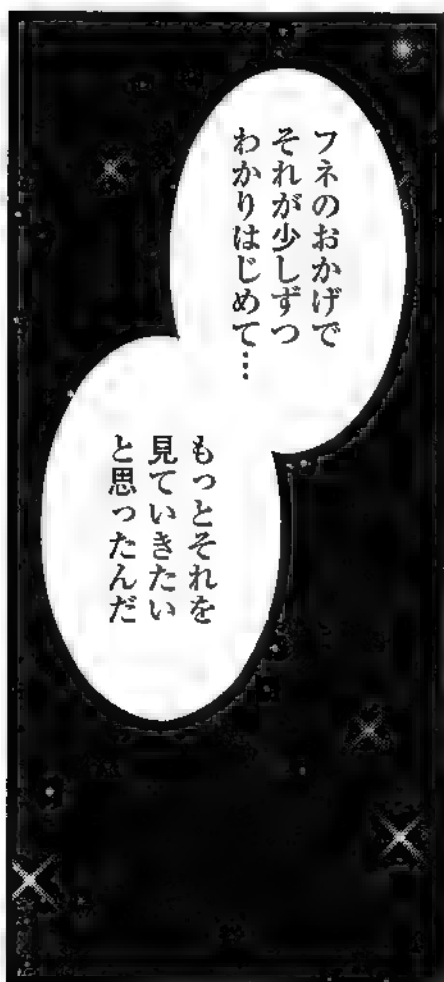 フネのおかげで
それが少しずつ
わかりはじめて…
もっとそれを
見ていきたい
と思ったんだ